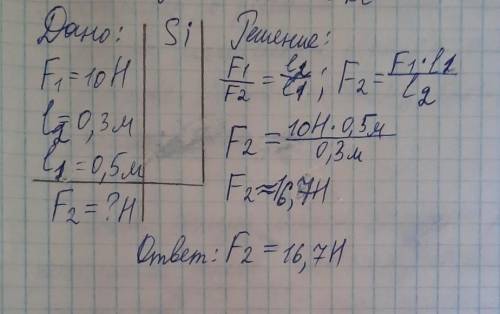 Дано:
Si
F₁ = 10Н
l₂ = 0,3м
l₁ = 0,5м
F₂ = ?Н
Решение:
F₁/F₂ = l₂/l₁; F₂ = F₁·l₁/l₂
F₂ = 10Н·0,5м/0,3м
F₂ ≈ 16,7Н
Ответ: F₂ = 16,7Н